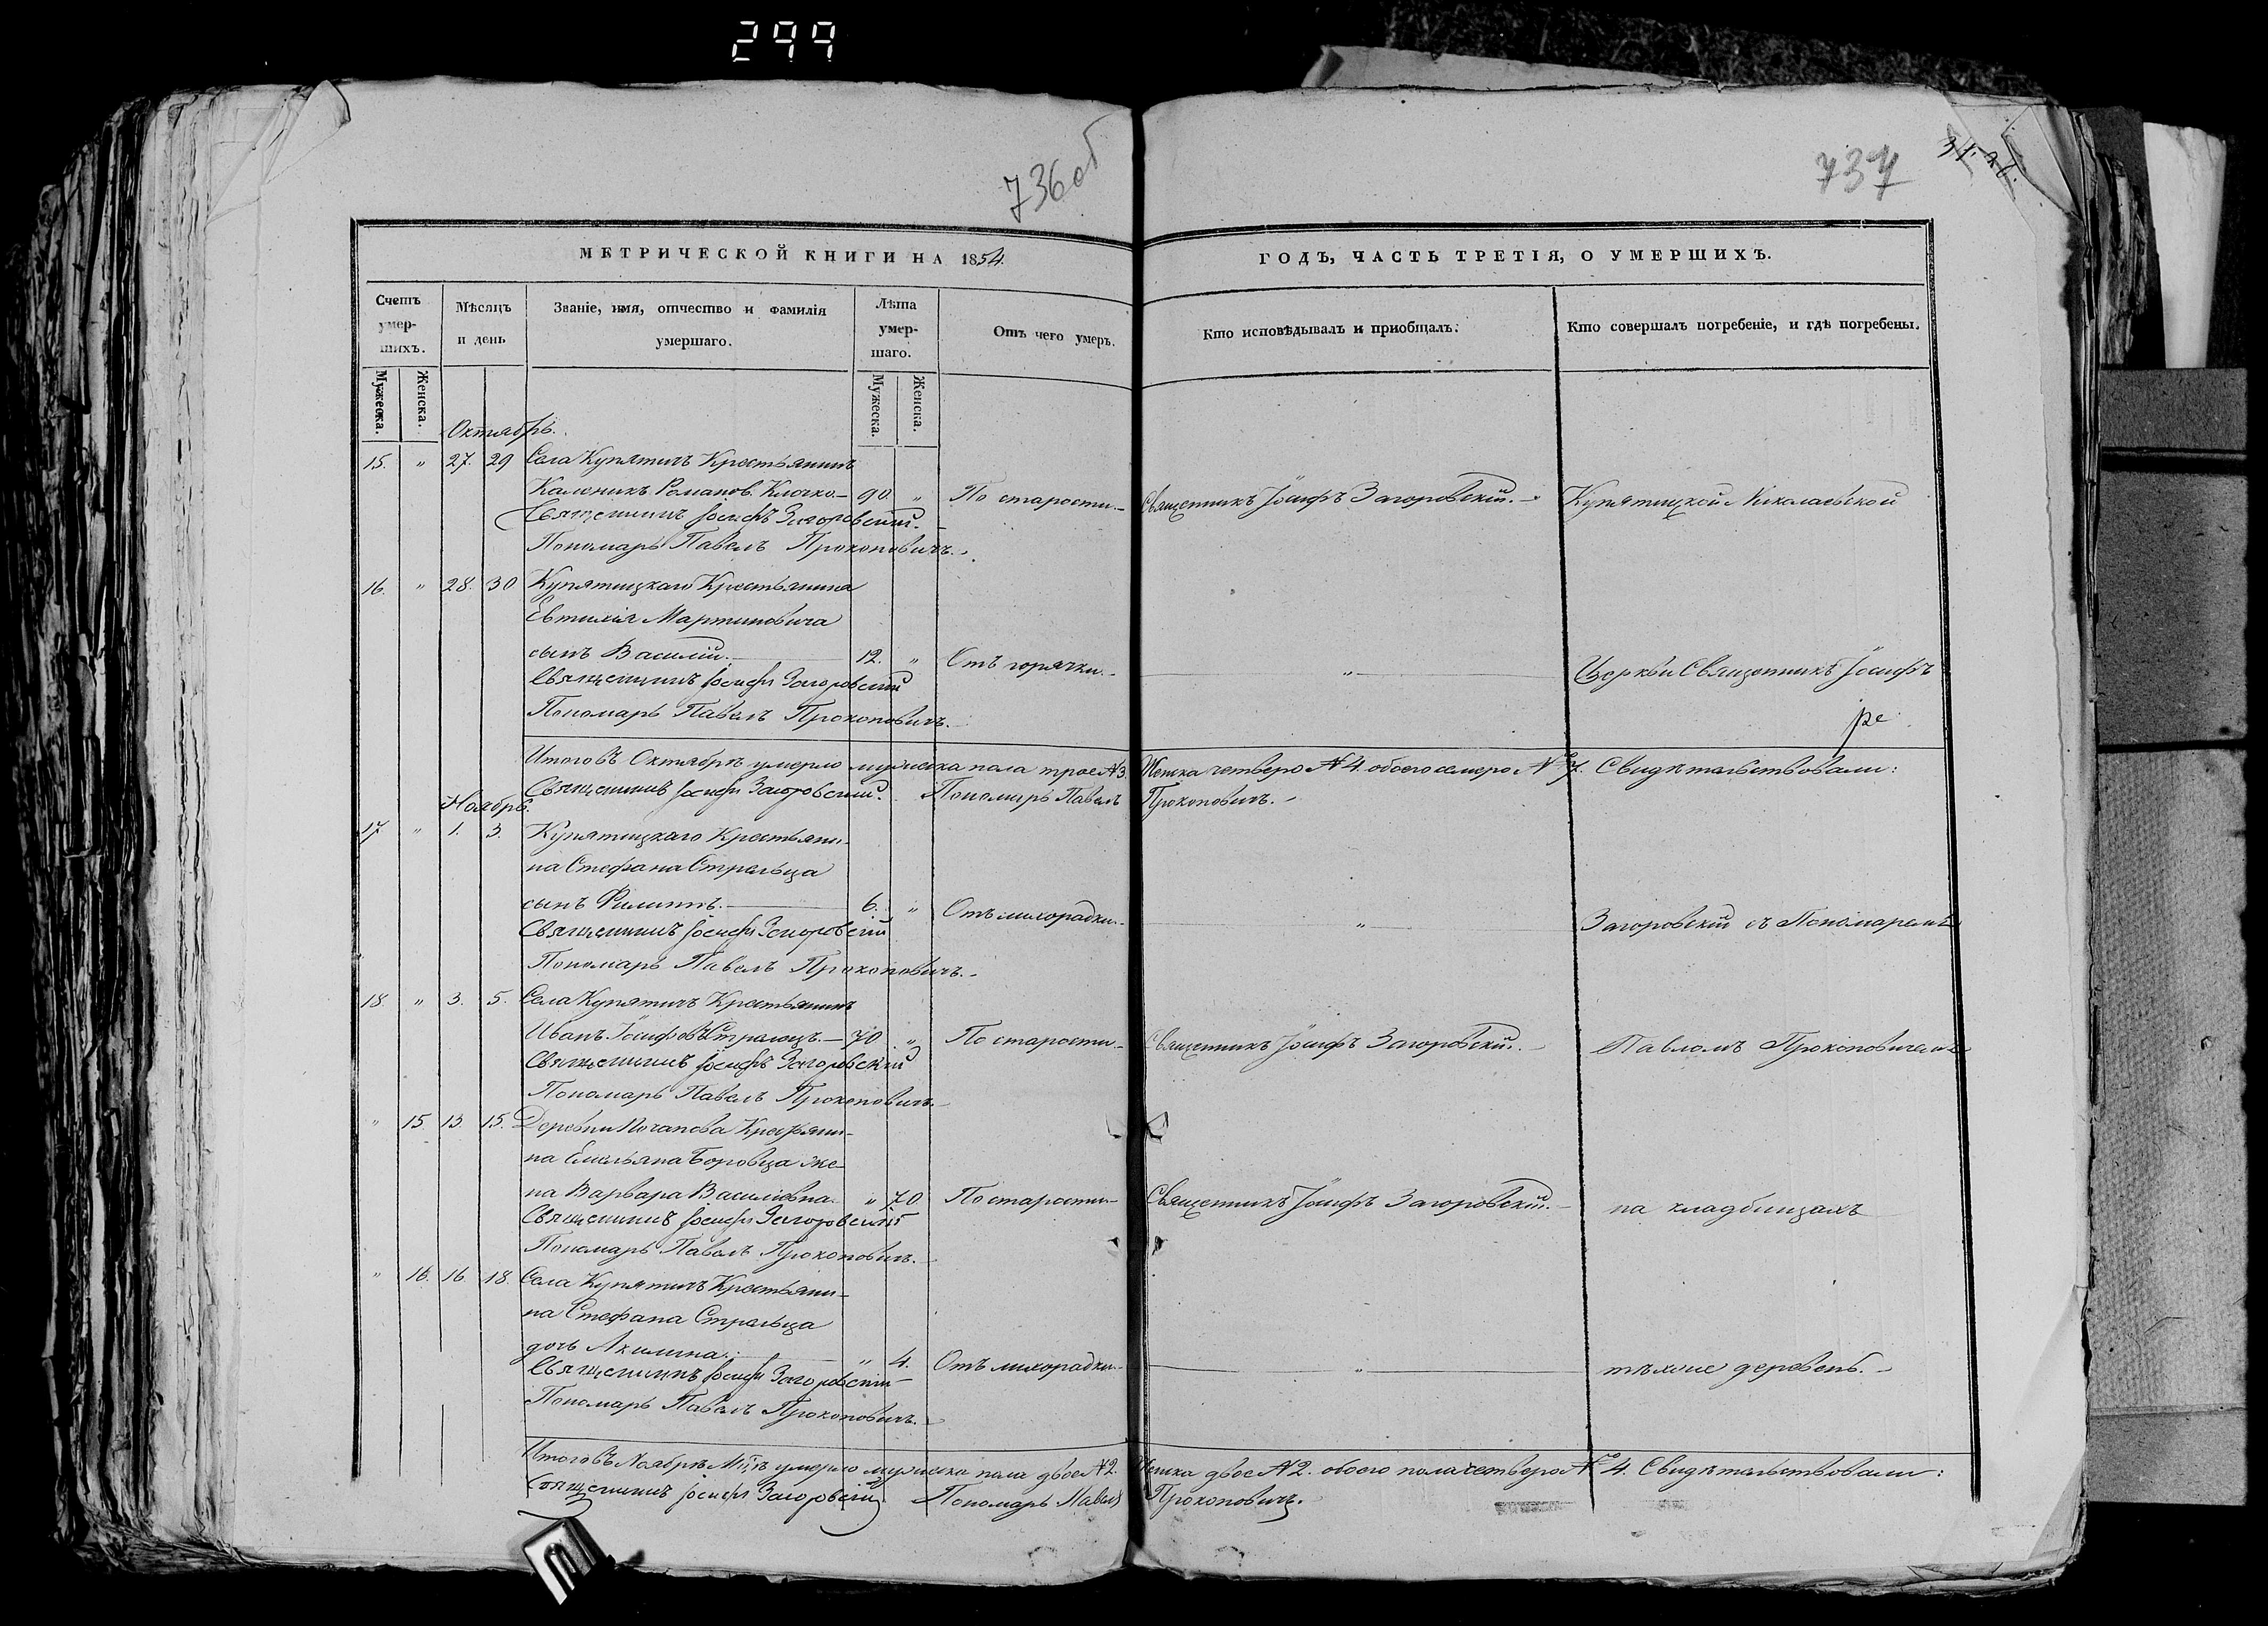 299
736об
737
МЕТРИЧЕСКОЙ КНИГИ НА 1854.
ГОДЪ, ЧАСТЬ ТРЕТІЯ, О УМЕРШИХЪ.
Счетъ умер-шихъ.
Мѣсяцъ и день
Званіе, имя, отчество и фамилія умершаго.
Лѣта умер-шаго.
Отъ чего умеръ.
Кто исповѣдывалъ и пріобщалъ.
Кто совершалъ погребеніе, и гдѣ погребены.
Мужеска.
Женска.
Мужеска.
Женска.
Октябрь.
15. " 27. 29 Села Купятичъ Крестьянинъ
Каленикъ Романов. Клочко — 90 " По старости. — Священникъ Іосифъ Загоровскій. — Купятицкой Николаевской
Священникъ Іосифъ Загоровскій.
Пономарь Павелъ Прокоповичъ.
16. " 28. 30 Купятицкаго Крестьянина
Евтихія Мартиновича
сынъ Василій. — 12. " Отъ горячки. — " — Церкви Священникъ Іосифъ
Священникъ Іосифъ Загоровскій
Пономарь Павелъ Прокоповичъ.
ре
Итого въ Октябрѣ умерло мужеска пола трое №3. Женска четверо №4. обоего семеро №7. Свидѣтельствовали:
Священникъ Іосифъ Загоровскій. Пономарь Павелъ Прокоповичъ.
Ноябрь.
17 " 1. 3. Купятицкаго Крестьяни-
на Стефана Стрельца
сынъ Филиппъ. — 6. " Отъ лихорадки. — " — Загоровскій съ Пономаремъ
Священникъ Іосифъ Загоровскій
Пономарь Павелъ Прокоповичъ.
18. " 3. 5. Села Купятичъ Крестьянинъ
Иванъ Іосифовъ Стрелецъ. — 70 " По старости. — Священникъ Іосифъ Загоровскій. — Павломъ Прокоповичемъ
Священникъ Іосифъ Загоровскій
Пономарь Павелъ Прокоповичъ.
" 15 13. 15. Деревни Почапова Крестьяни-
на Емельяна Боровца же-
на Варвара Василіевна. " 70 По старости — Священникъ Іосифъ Загоровскій. — на кладбищахъ
Священникъ Іосифъ Загоровскій
Пономарь Павелъ Прокоповичъ.
" 16. 16. 18. Села Купятичъ Крестьяни-
на Стефана Стрельца
дочь Акилина. — " 4. Отъ лихорадки. — " — тѣхже деревень. —
Священникъ Іосифъ Загоровскій
Пономарь Павелъ Прокоповичъ.
Итого въ Ноябрѣ М-цѣ умерло мужеска пола двое №2. Женска двое №2. обоего пола четверо № 4. Свидѣтельствовали:
Священникъ Іосифъ Загоровскій Пономарь Павелъ Прокоповичъ.